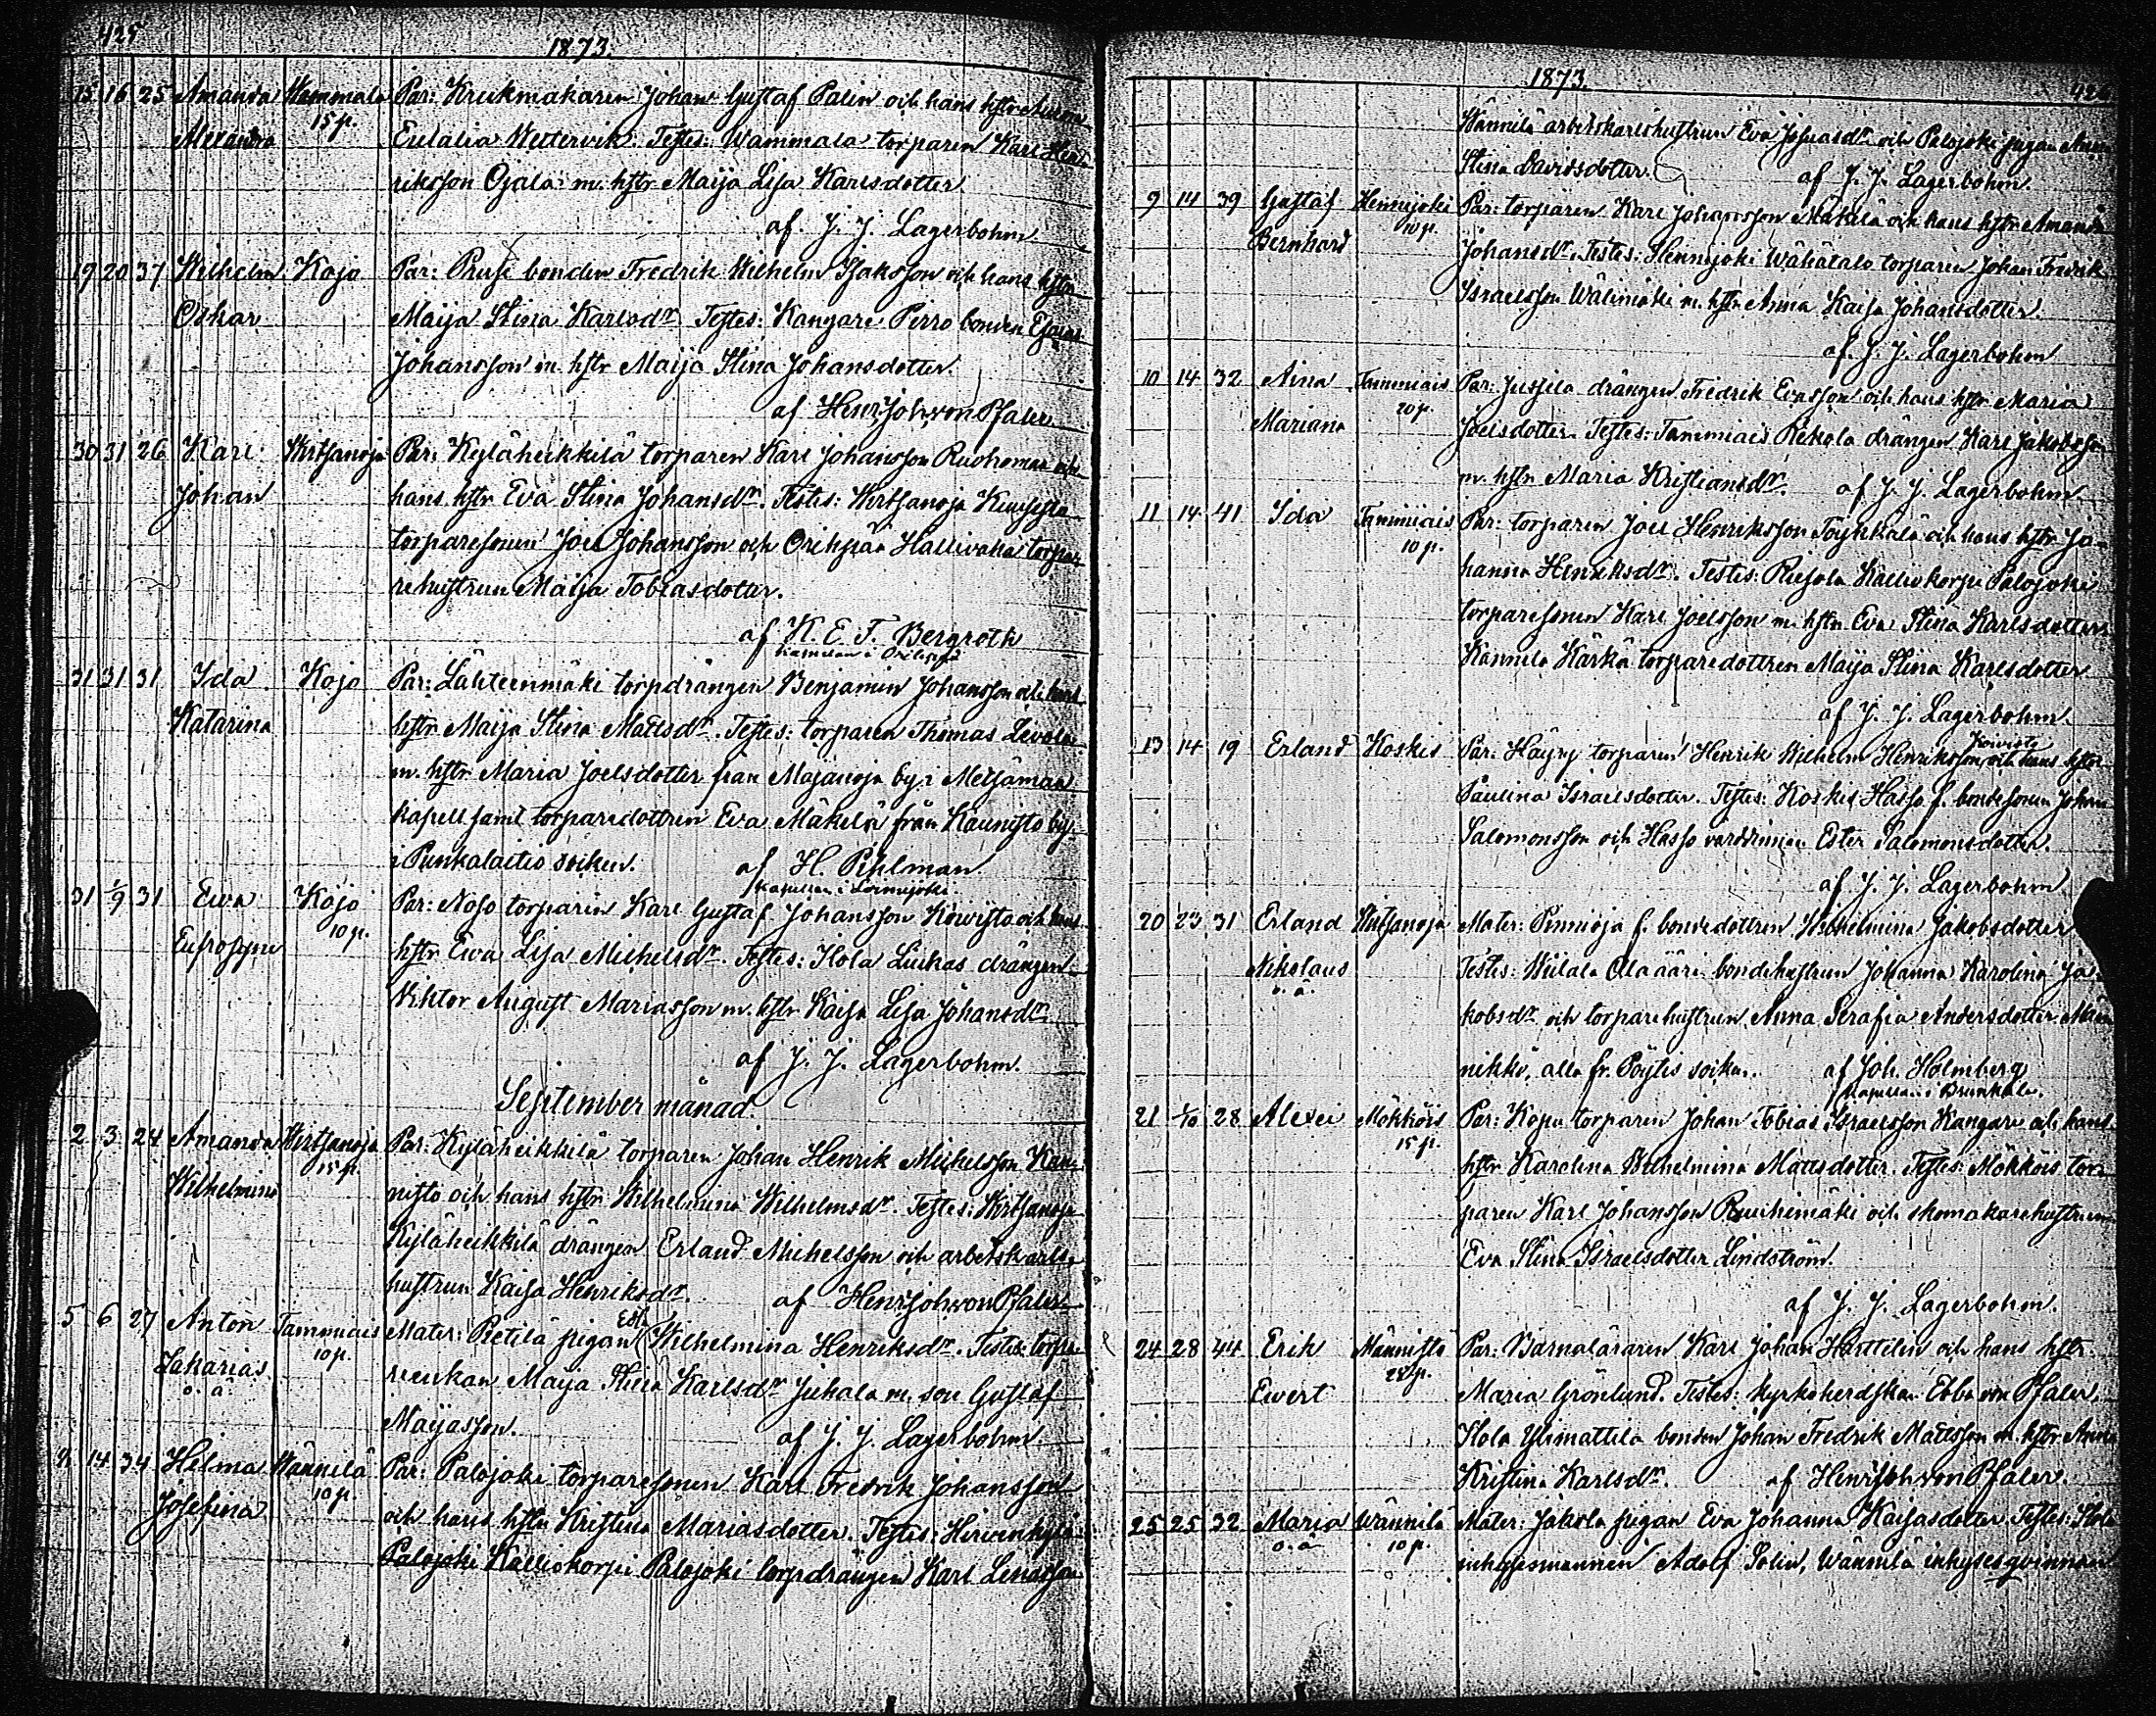 425
1873.
15 16 25 Amanda Wammala Par: Krukmakaren Johan Gustaf Palin och hans hstr
Alexandra 15 p. Eulalia Westervik. Testes: Wammala torparen Karl Hen-
riksson Ojala m. hstr Maija Lisa Karlsdotter
af J. J. Lagerbohm
19 20 37 Wilhelm Kojo Par: Prusi bonden Fredrik Wilhelm Isaksson och hans hstr
Oskar Maija Stina Karlsdr. Testes: Kangare Pirro bonden Esaias
Johansson m. hstr Maija Stina Johansdotter.
af Henr. Joh. von Pfaler
30 31 26 Karl Wirtsanoja Par: Kyläheikkilä torparen Karl Johansson Ruohomaa och
Johan hans hstr Eva Stina Johansdr. Testes: Wirtsanoja
torparesonen Joel Johansson och Orihpää Hallivaha torpa-
rehustrun Maija Tobiasdotter.
af K. E. F. Bergroth
kapellan i Orihpää
31 31 31 Ida Kojo Par: Lähteenmäki torpdrängen Benjamin Johansson och hans
Katarina hstr Maija Stina Mattsdr. Testes: torparen Thomas Levola
m. hstr Maria Joelsdotter från Majanoja by i Metsämaa
kapell samt torparedottren Eva Mäkelä från Kaunisto by
i Punkalaitio socken. af H. Pihlman
kapellan i Loimijoki
31 1/9 31 Ewa Kojo Par: Noso torparen Karl Gustaf Johansson Koivisto och hans
Eufrosyne 10 p. hstr Ewa Lisa Michelsdr. Testes: Ilola Luukas drängen
Viktor August Mariasson m. hstr Kaisa Lisa Johansdr.
af J. J. Lagerbohm.
September månad.
2 3 24 Amanda Wirtsanoja Par: Kyläheikkilä torparen Johan Henrik Michelsson Kau-
Wilhelmina 15 p. nisto och hans hstr Wilhelmina Wilhelmsdr. Testes: Wirtsanoja
Kyläheikkilä drängen Erland Michelsson och arbetskarls-
hustrun Kaisa Henriksdr. af Henr. Joh. von Pfaler
5 6 27 Anton Tammiais Mater: Pietilä pigan Eda Wilhelmina Henriksdr. Testes: torpa-
Sakarias 10 p. reenkan Maija Stina Karlsdr Jukala m. son Gustaf
o. ä. Maijasson. af J. J. Lagerbohm
14 34 Helma Wännilä Par: Palojoki torparesonen Karl Fredrik Johansson
Josefina 10 p. och hans hstr Kristina Mariasdotter. Testes: Hirvenkylä
Palojoki Kalliokorpi Palojoki torpdrängen Karl Lenasson
1873.
Wännilä arbetskarlshustrun Eva Josuasdr och Palojoki pigan Anna
Stina Davidsdotter. af J. J. Lagerbohm.
9 14 39 Gustaf Hennijoki Par: torparen Karl Johansson Mäkilä och hans hstr Amanda
Bernhard 10 p. Johansdr. Testes: Hennijoki Wähätalo torparen Johan Fredrik
Israelsson Wälimäki m. hstr Anna Kaisa Johansdotter.
af J. J. Lagerbohm
10 14 32 Aina Tammiais Par: Jussila drängen Fredrik Evasson och hans hstr Maria
Mariana 20 p. Joelsdotter. Testes: Tammiais Rekola drängen Karl Jakobsson
m. hstr Maria Kristiansdr. af J. J. Lagerbohm
11 14 41 Ida Tammiais Par: torparen Joel Henriksson Töykkälä och hans hstr Jo-
10 p. hanna Henriksdr. Testes: Riesola Kalliokorpi Palojoki
torparesonen Karl Joelsson m. hstr Eva Stina Karlsdotter,
Kännilä Kärkä torparedottren Maija Stina Karlsdotter
af J. J. Lagerbohm.
13 14 19 Erland Koskis Par: Käyry torparen Henrik Wilhelm Henriksson Koivisto och hans hstr
Paulina Israelsdotter. Testes: Koskis Hasso f. bondesonen Johan
Salomonsson och Hasso värdinnan Ester Salomonsdotter.
af J. J. Lagerbohm
20 23 31 Erland Wirtsanoja Mater: Pinnioja f. bondedottren Wilhelmina Jakobsdotter
Nikolaus Testes: Wiilala Ola ääri bondehustrun Johanna Karolina Ja-
o. ä. kobsdr och torparehustrun Anna Serafia Andersdotter Män-
nikkö, alla fr. Pöytis socken. af Joh. Holmberg
kapellan i Brunkala.
21 1/10 28 Alexei Mökköis Par: Kopu torparen Johan Tobias Israelsson Kangare och hans
15 p. hstr Karolina Wilhelmina Mattsdotter. Testes: Mökköis tor-
paren Karl Johansson Ruuhimäki och skomakarehustrun
Eva Stina Israelsdotter Lindström.
af J. J. Lagerbohm.
24 28 44 Erik Männistö Par: Barnaläraren Karl Johan Harttelin och hans hstr.
Ewert Maria Grönlund. Testes: kyrkoherdskan Ebba von Pfaler,
Ilola Ylimattila bonden Johan Fredrik Mattsson m. hstr Anna
Kristina Karlsdr. af Henr. Joh. von Pfaler.
25 25 32 Maria Wännilä Mater: Jakola pigan Eva Johanna Kaisasdotter Testes: Ilola
o. ä. 10 p. inhysesmannen Adolf Solin, Wännilä inhysesqvinnan